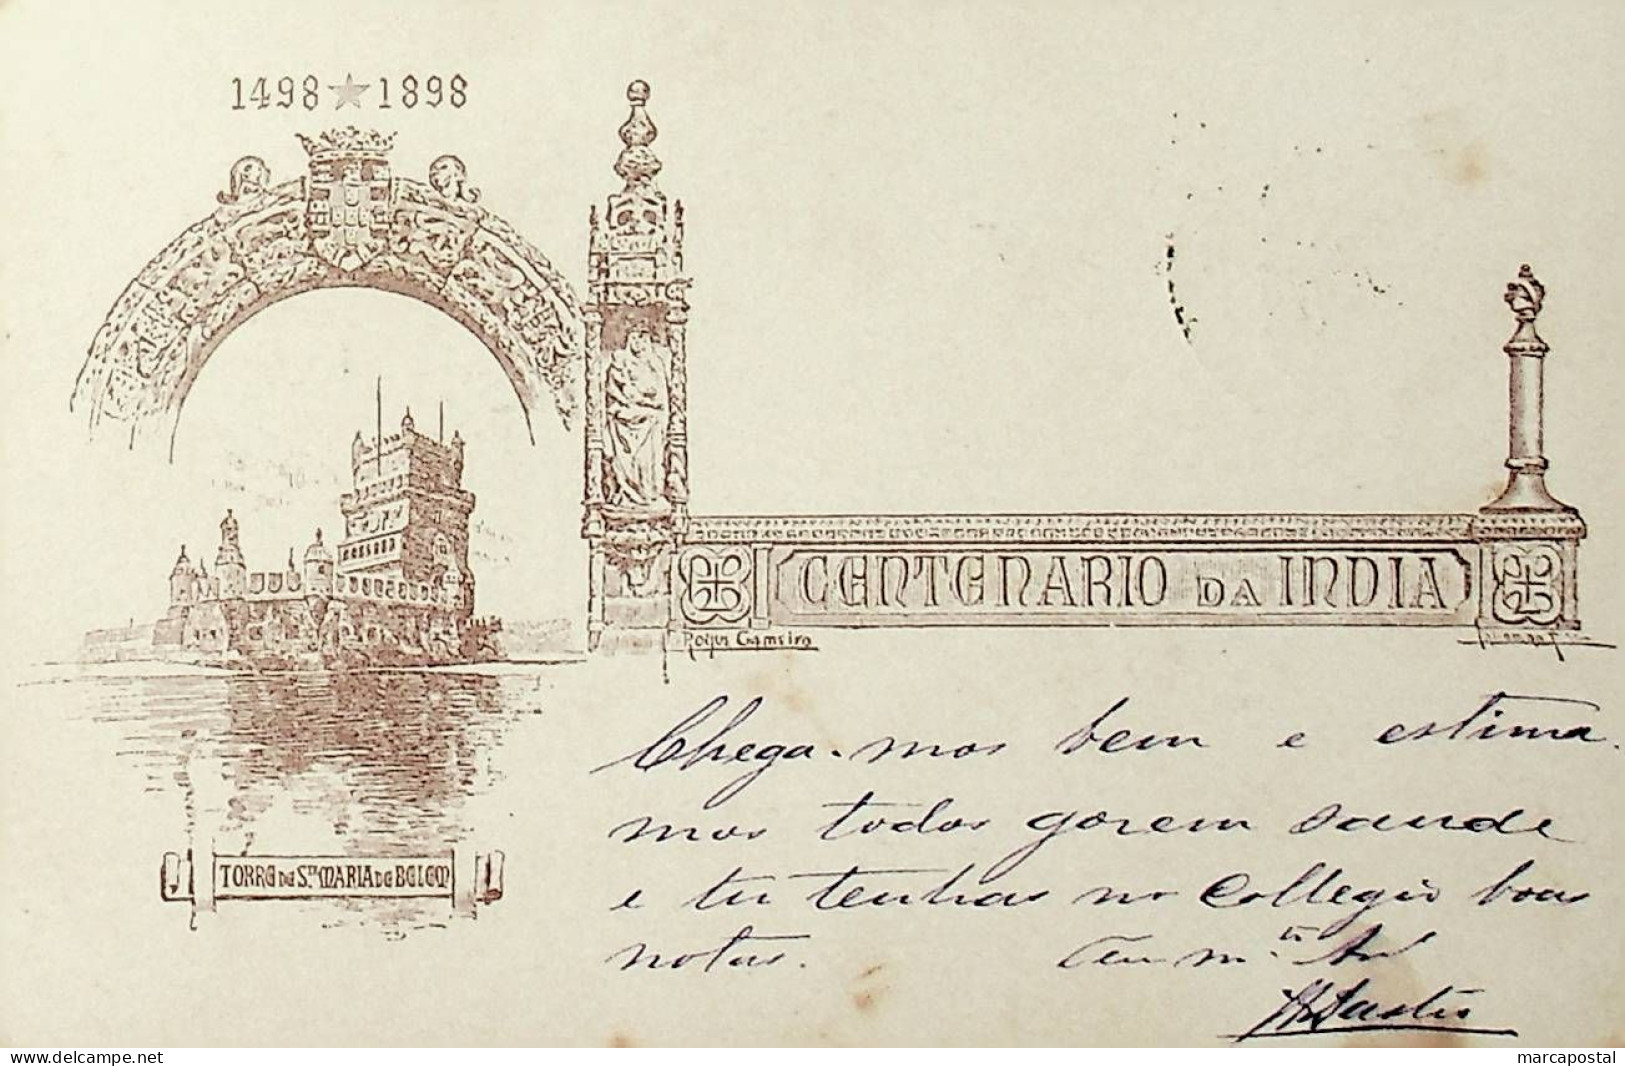 1498 ★ 1898
CENTENARIO DA INDIA
Roque Gameiro
Chega-mos bem e estima-
mos todos gosem saude
e tu tenhas no Collegio boas
notas. Teu m.to
TORRE DE S.TA MARIA DE BELEM
www.delcampe.net
marcapostal